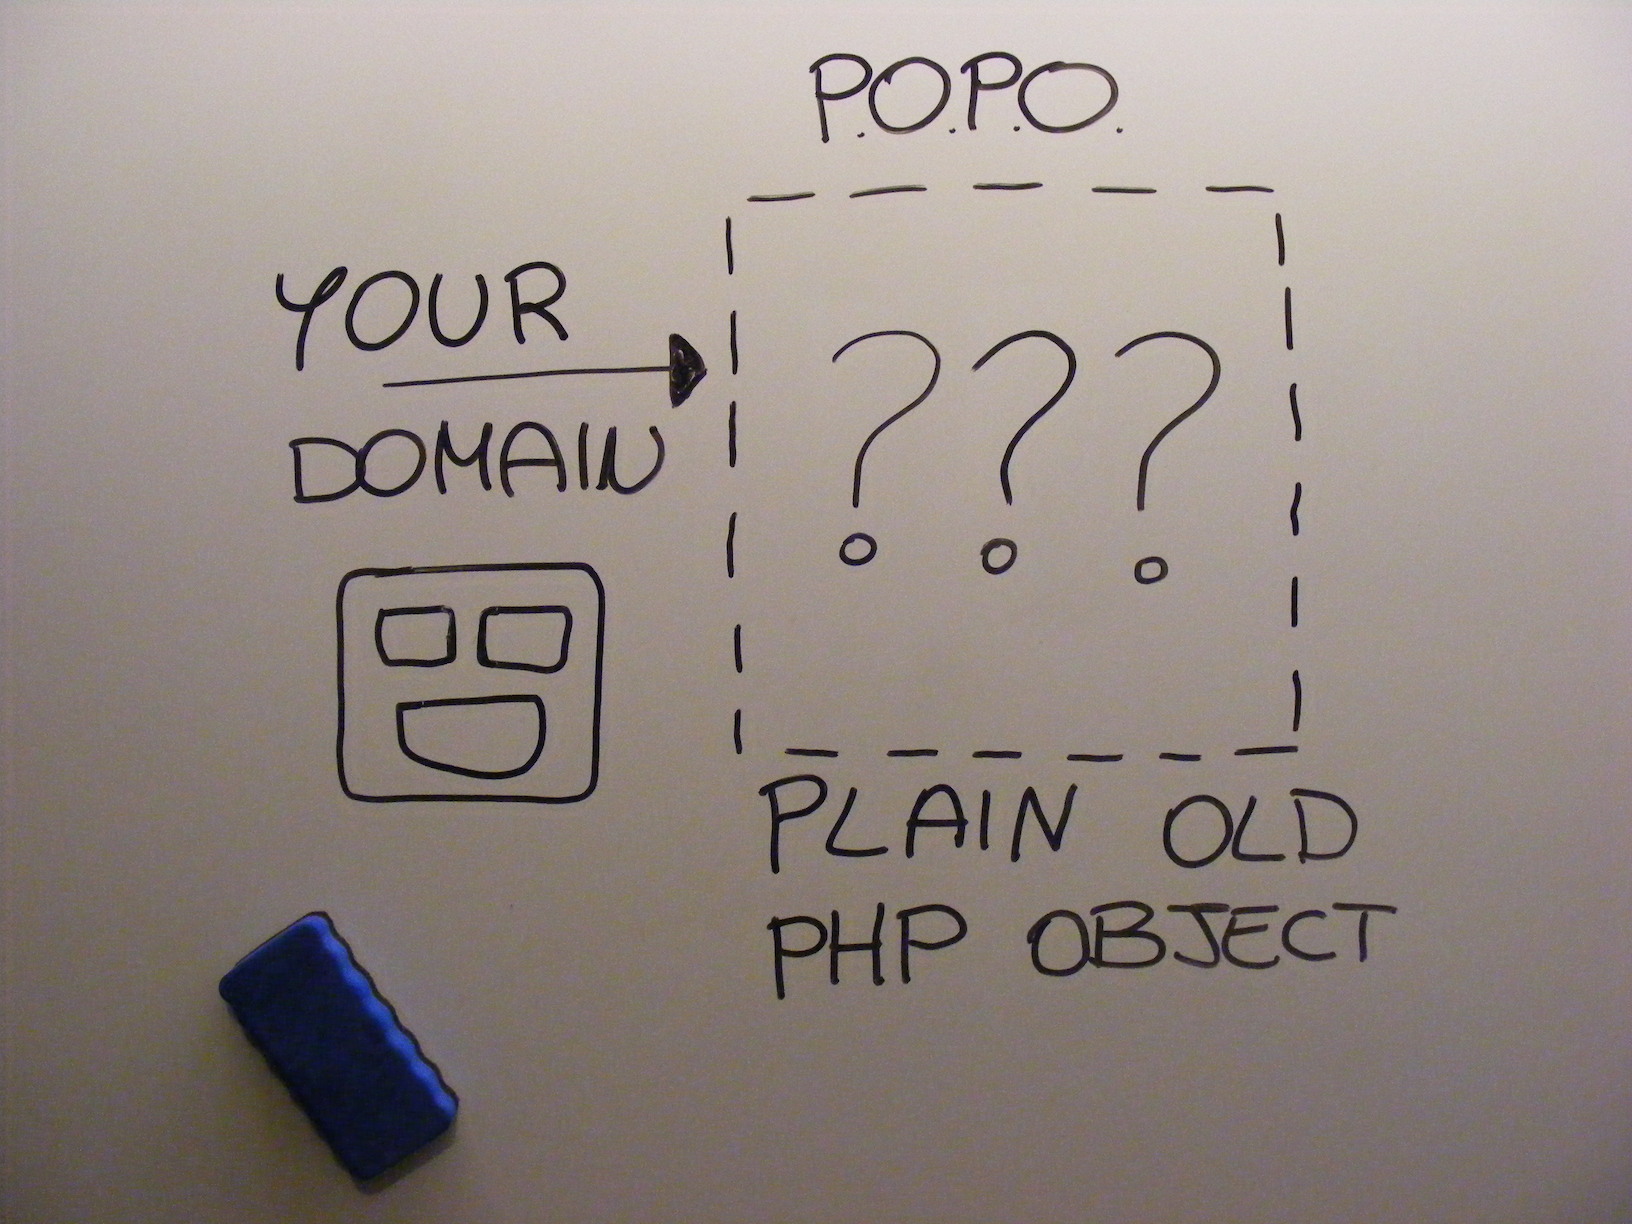 P.O.P.O.
YOUR
DOMAIN
???
PLAIN OLD
PHP OBJECT